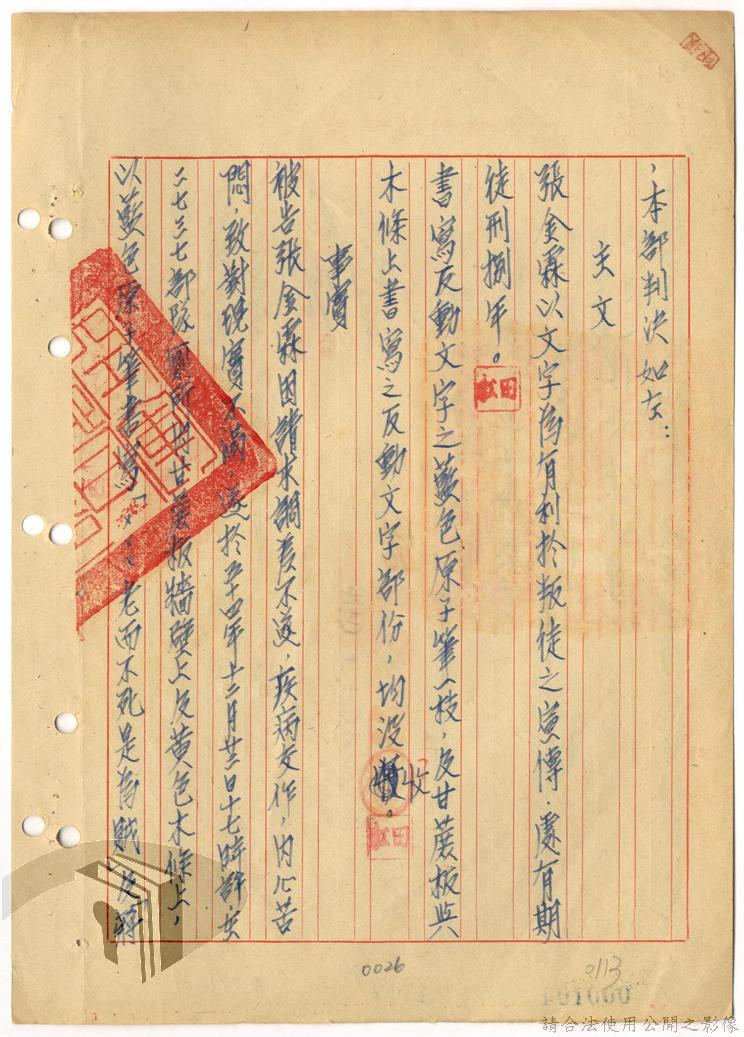 ，本部判決如左：
主文
張金霖以文字為有利於叛徒之宣傳，處有期
徒刑捌年。
書寫反動文字之藍色原子筆一枝，及甘蔗板與
木條上書寫之反動文字部份，均没收。
事實
被告張金霖因請求調差不遂，疾病交作，內心苦
悶，致對現實不滿，遂於五十四年十二月廿二日十七時許，在
二七三七部隊廁所內甘蔗板牆壁上及黃色木條上，
以藍色原子筆書寫「老而不死是為賊」及蔣
0026
0113
000104
請合法使用公開之影像